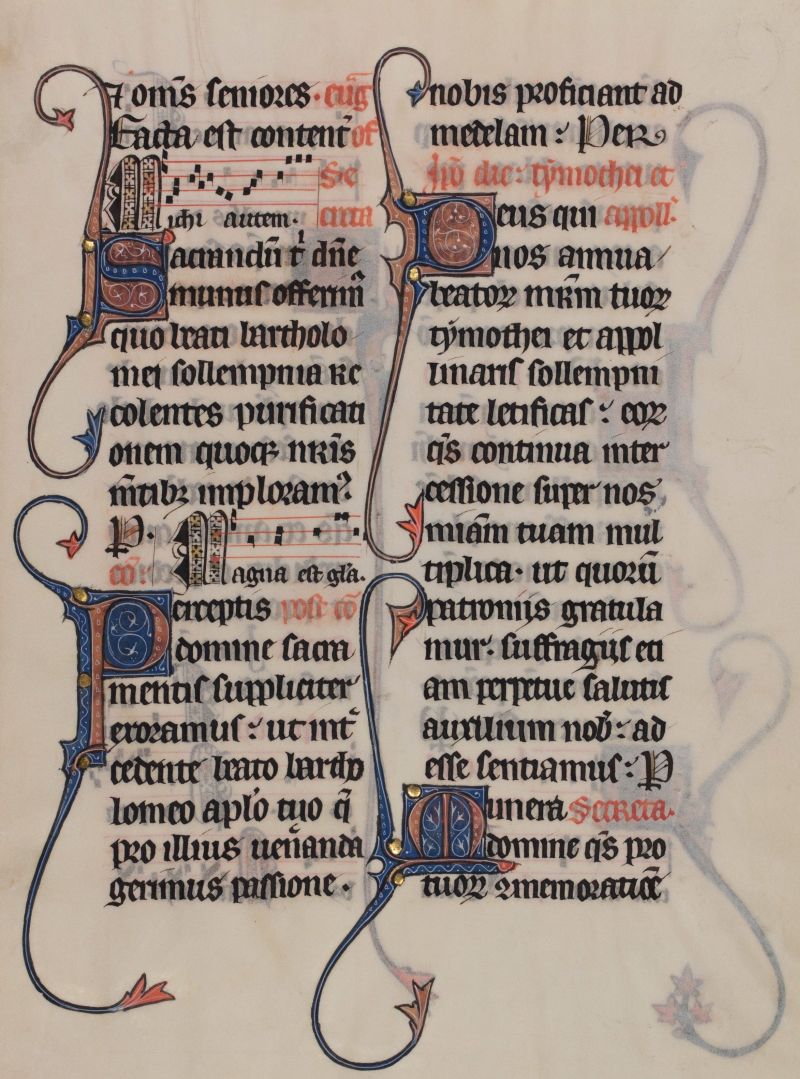 ⁊ om̄s seniores. eūg
Facta est content̄ of
Se
Michi autem. creta
Sacrandū t͛ dn̄e
munus offerim̄
quo beati bartholo
mei sollempnia re
colentes purificati
onem quoqꝫ nr̄is
m̄tibꝫ imploram⁹.
P.
cō: Magna est gl̄a.
Perceptis post cō
domine sacra
mentis suppliciter
exoramus: ut int̄
cedente beato bartho
lomeo apl̄o tuo q̄
pro illius uen̄anda
gerimus passione.
nobis proficiant ad
medelam: Per
Ip̄o die: tymothei et
Deus qui appoll.
nos annua
beatoꝝ mr̄m tuoꝝ
tymothei et appol
linaris sollempni
tate letificas: eoꝝ
q̄s continua inter
cessione super nos
mīam tuam mul
tiplica. ut quorū
patroniis gratula
mur. suffragiis eti
am perpetue salutis
auxilium nob̄: ad
esse sentiamus: P
Munera Secreta.
domine q̄s pro
tuoꝝ ꝯmemoratiōe